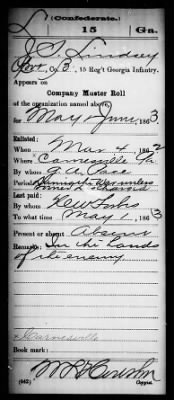 (Confederate.)
L 15 Ga.
J. T. Lindsey
Pvt, Co. B, 15 Reg't Georgia Infantry.
Appears on
Company Muster Roll
of the organization named above,
for May & June, 1863.
Enlisted:
When Mar 4, 1862
Where Carnesville Ga
By whom
Period
Last paid:
By whom
To what time May 1, 1863
Present or absent Absent
Remarks: In the hands
of the enemy
Carnesville
Book mark:
(642) Copyist.